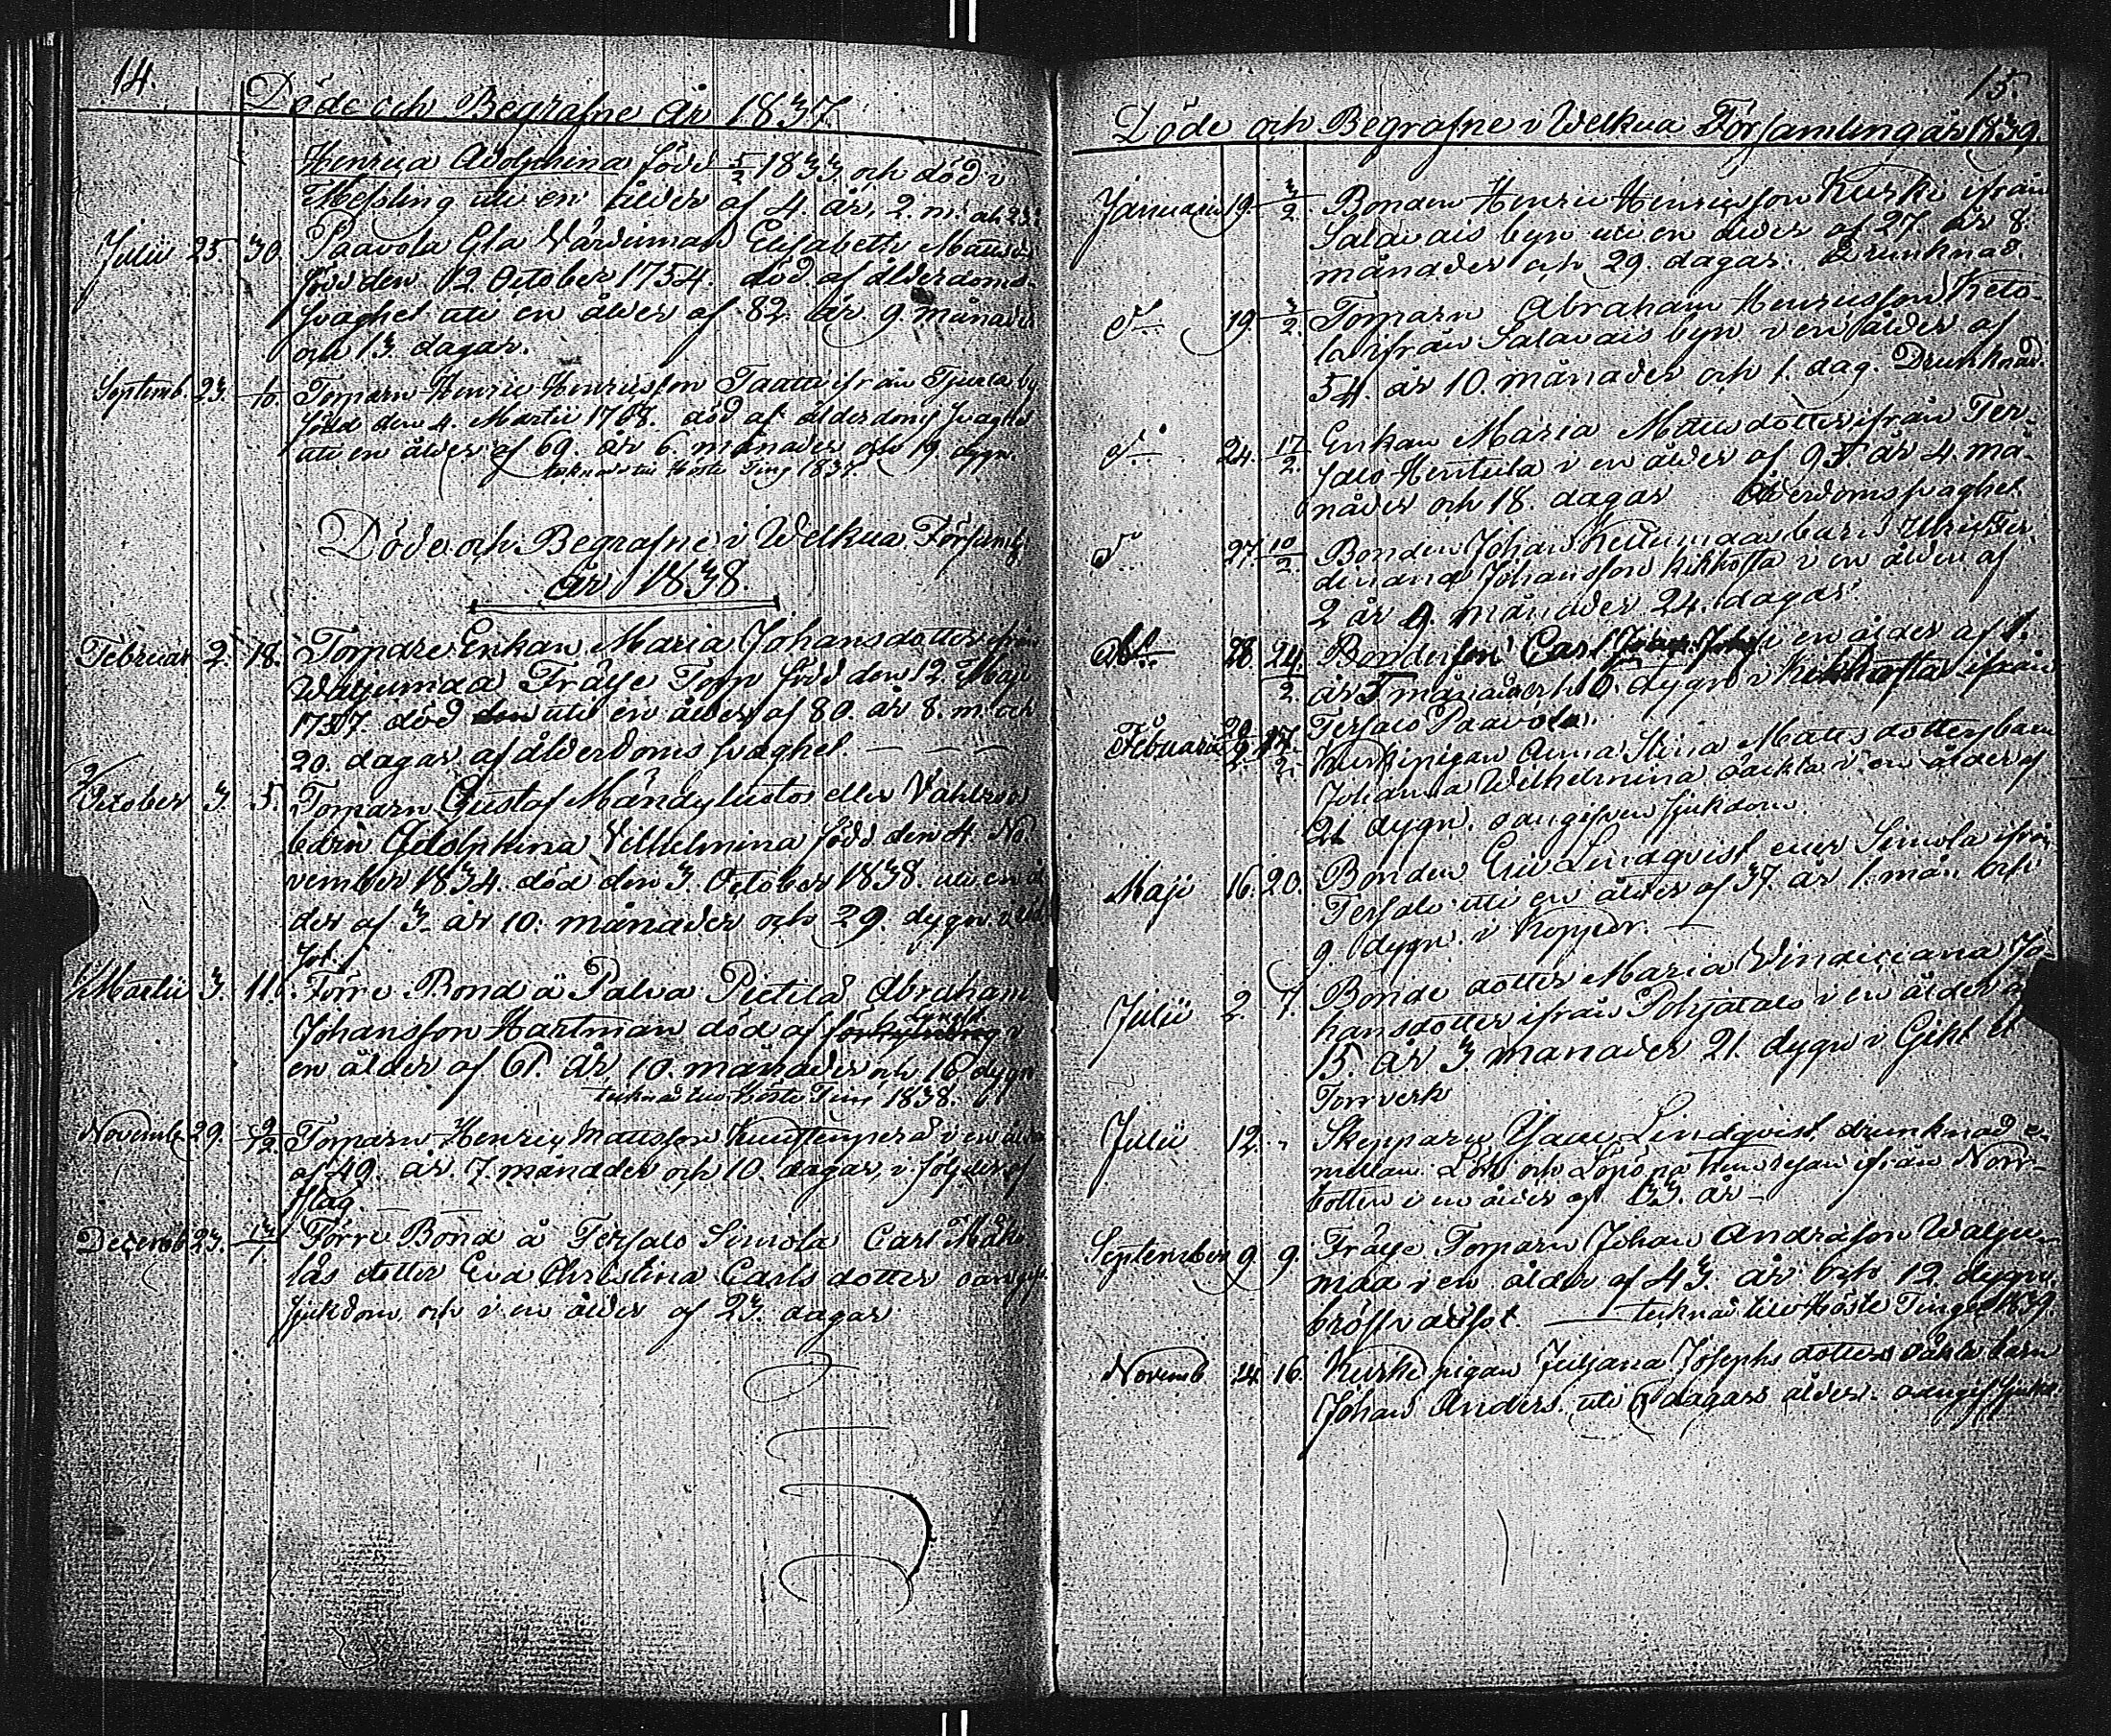 14.
Döde och Begrafne År 1837.
Henrica Adolphina född 5/2 1833 och död i
Messling uti en ålder af 4. år, 2. m. och 23.
Julii 25 30. Paavola Gla Värdinnan Elisabeth Matsd.
född den 12 October 1754. död af ålderdoms-
svaghet uti en ålder af 82 år 9. månader
och 13 dagar.
Septemb. 23. Torparn Henric Henricsson Taatti ifrån by
född den 4. Martii 1768. död af ålderdoms svaghet
uti en ålder af 69. år 6 månader och 19 dygn.
Höste Ting 1837.
Döde och Begrafne i Welkua Församl.
år 1838.
Februar 2. 18. Torpare Enkan Maria Johansdotter ifrån
Torp född den 12 Maji
1757. död uti en ålder af 80. år 8. m. och
20. dagar af ålderdoms svaghet
October 3. 5. Torparn Gustaf eller
barn Adolphina Vilhelmina född den 4. No
vember 1834. död den 3. October 1838. uti en ål
der af 3. år 10. månader och 29. dygn
Martii 3. 11. Förre Bond å Palva Pietilä Abraham
Johansson Hartman död af
en ålder af 61. år 10. månader och 16 dygn
Höste Ting 1838.
Novemb 29. 9/12. Torparn Henric Mattsson i en ålder
af 49. år 7. månader och 10. dagar, i följder af
slag.
Decemb 23. 13/1. Förre Bond å Tersalo Simola Carl
lås dotter Eva Christina Carls dotter oangif.
sjukdom och i en ålder af 23. dagar
15.
Döde och Begrafne i Welkua Församling år 1839.
Januarii 19. 3/2. Bonden Henric Henricsson Kurki ifrån
Salavais byn uti en ålder af 27. år 8.
månader och 29. dagar. Drunknad.
d:o 19. 3/2. Torparn Abraham Henricsson Keto-
la ifrån Salavais byn i en ålder af
54. år 10. månader och 1. dag. Drunknad.
d:o 24. 17/2. Enkan Maria Mattsdotter ifrån Ter-
salo Hentula i en ålder af 95. år 4. må-
nader och 18. dagar Ålderdomssvaghet
d:o 27. 10/2. Bonden Johan barn Ulric Fer-
dinand Johansson kikhosta i en ålder af
2 år 9. månader 24. dagar
28 24/2. Bondeson Carl i en ålder af 1.
år 5 månader och 6. dygn i Kikhosta ifrån
Tersalo Paavola.
Februarii 17/2. Kurki pigan Anna Stina Mattsdotters barn
Johanna Wilhelmina oäckta i en ålder af
21 dygn. oangifven sjukdom.
Maji 16. 20. Bonden Eric Lindqvist eller Simola ifrån
Tersalo uti en ålder af 37. år 1. mån. och
9. dygn. i Koppor.
Julii 2. 7. Bonde dotter Maria Vindiciana Jo-
hansdotter ifrån Pohjatalo i en ålder af
15. år 3 månader 21. dygn i Gikt et
Torrverk
Julii 12. " Skepparn Lindqvist drunknad e-
mellan och på hemresan ifrån Norr-
botten i en ålder af 33. år
September 9. 9. Fråise Torparn Johan Andersson Waljus-
maa i en ålder af 43. år och 12. dygn
bröst till Höste Tinget 1839
Novemb 14. 16. Kurki pigan Juliana Josephs dotters oäkta barn
Johan Anders. uti dagars ålder. oangif. sjukd.